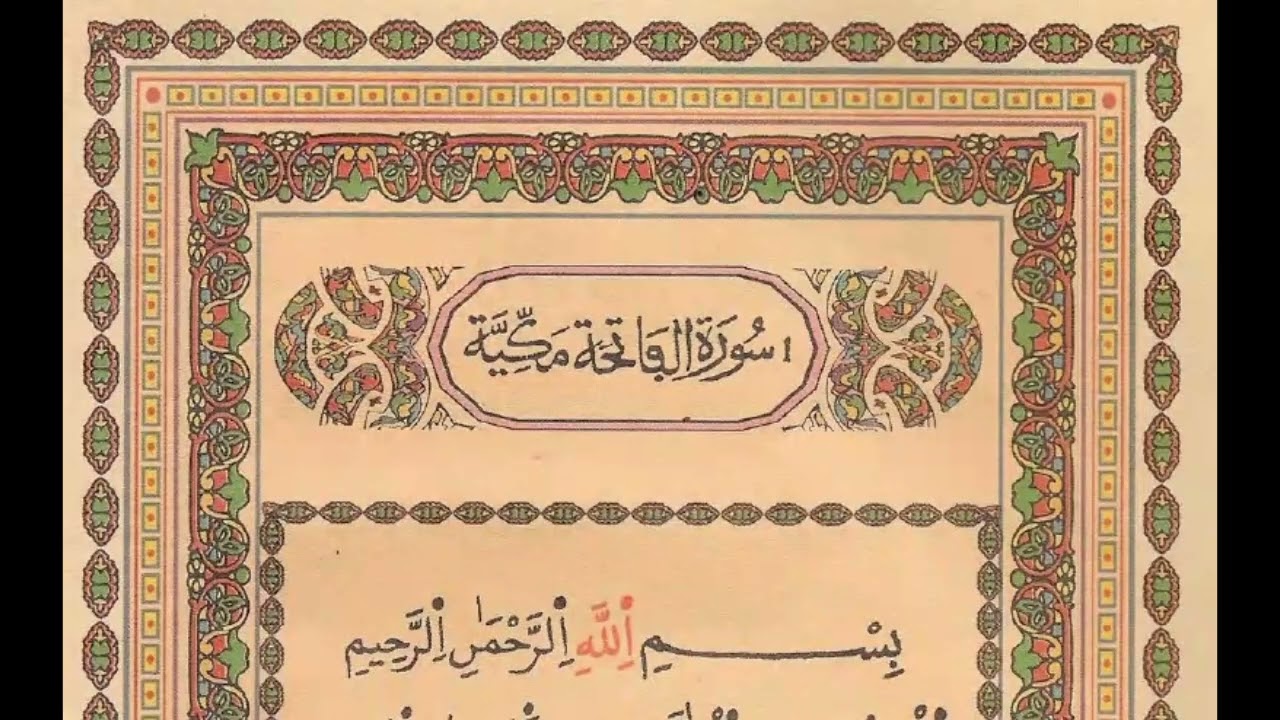 ١ سُورَةُ الْفَاتِحَةِ مَكِّيَّة
بِسْمِ اِللَّهِ اِلرَّحْمَٰنِ اِلرَّحِيمِ